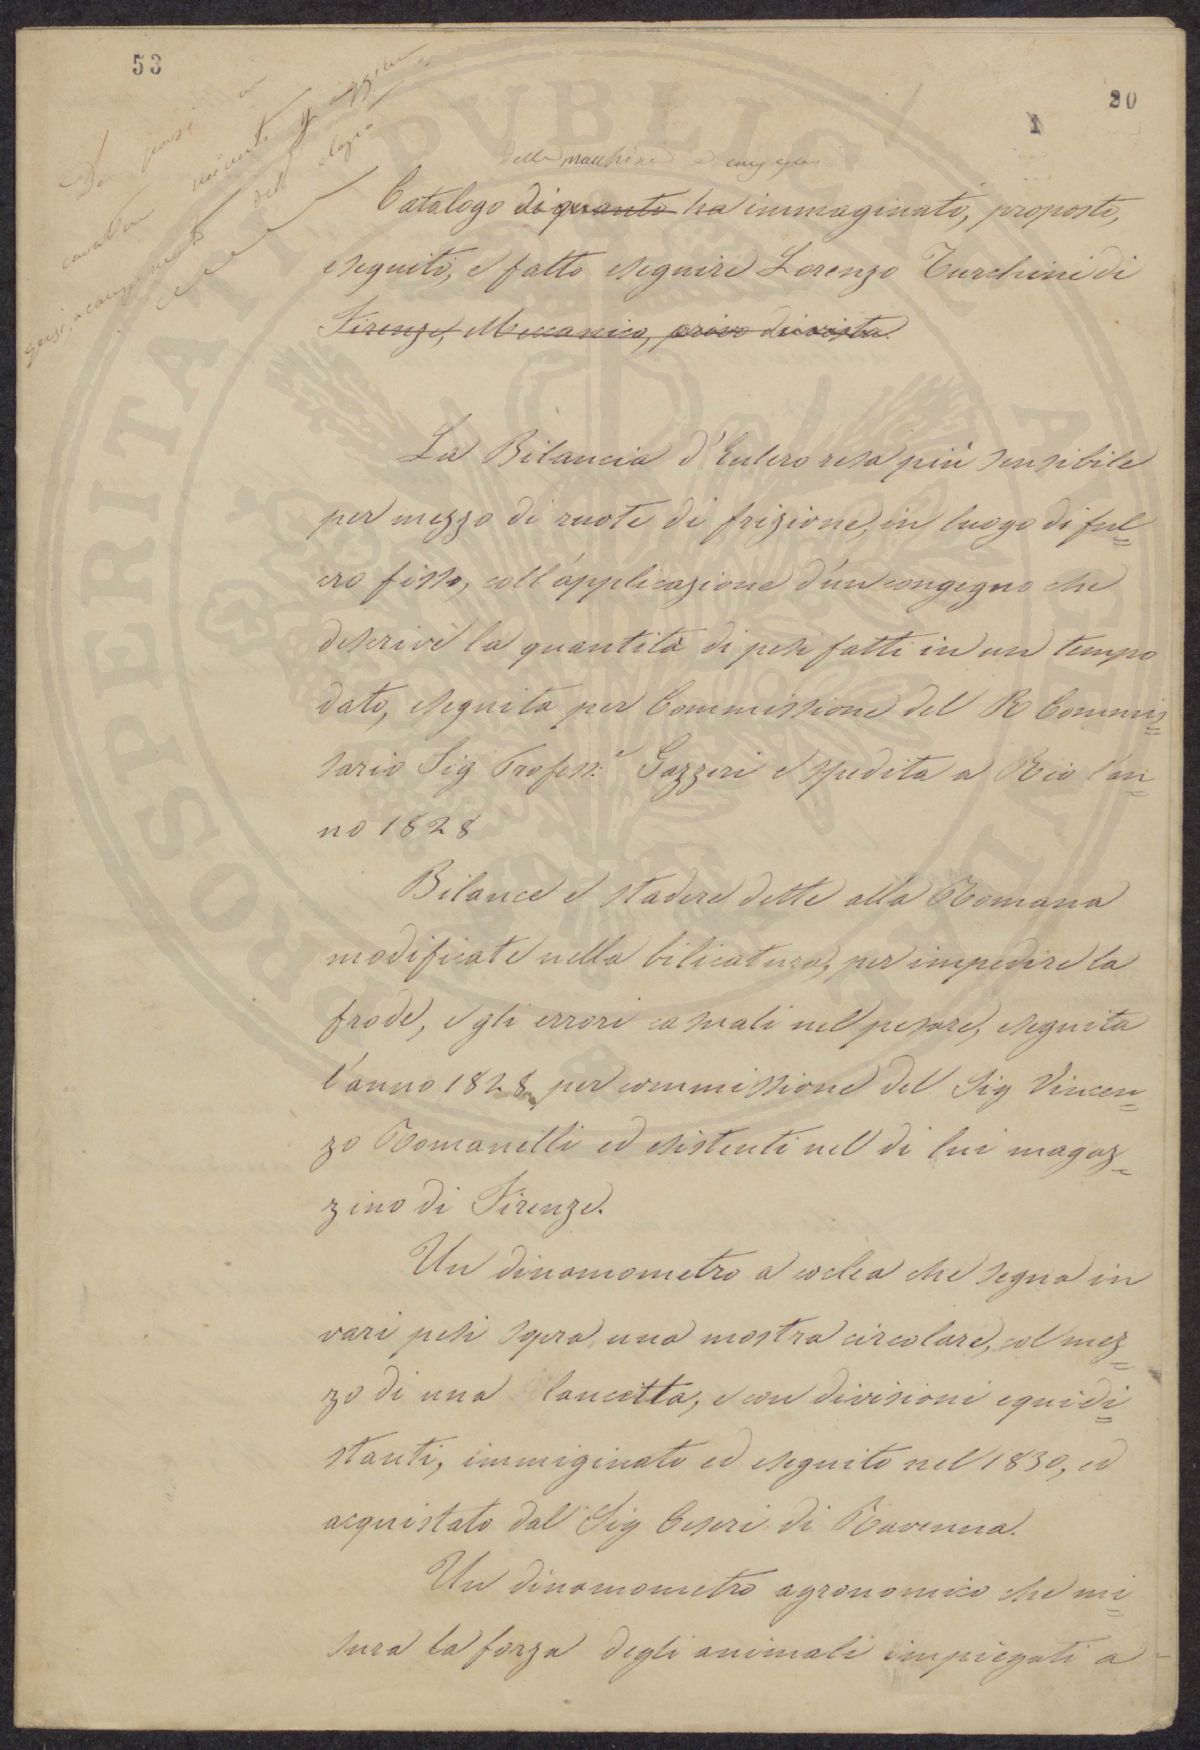 53
20
1
delle macchine e congegni
Catalogo di quanto ha immaginato, proposto,
eseguito, e fatto eseguire Lorenzo Turchini di
Firenze, Meccanico, privo di vista.
La Bilancia d'Eulero resa più sensibile
per mezzo di ruote di frizione, in luogo di ful=
cro fisso, coll'applicazione d'un congegno che
descrive la quantità di pesi fatti in un tempo
dato, eseguita per Commissione del R Commis=
sario Sig Profess.e Gazzeri e spedita a Rio l'an=
no 1828
Bilance e stadere dette alla Romana
modificate nella bilicatura, per impedire la
frode, e gli errori casuali nel pesare, eseguita
l'anno 1828 per commissione del Sig Vincen=
zo Romanelli ed esistenti nel di lui magaz=
zino di Firenze.
Un dinamometro a coclea che segna in
vari pesi sopra una mostra circolare, col mez=
zo di una lancetta, e con divisioni equidi=
stanti, immiginato ed eseguito nel 1830, ed
acquistato dal Sig Ceseri di Ravenna.
Un dinamometro agronomico che mi=
sura la forza degli animali impiegati a
PROSPERITATI PVBLICAE AVGENDAE